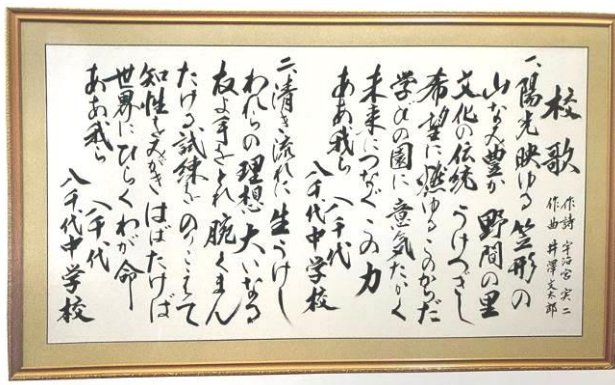 校歌
作詩 宇治宮 実二
作曲 井澤 文太郎
一、陽光映ゆる 笠形の
山なみ豊か 野間の里
文化の伝統 うけつぎし
希望に燃ゆる このからだ
学びの園に 意気たかく
未来につなぐ この力
ああ我ら 八千代
八千代中学校
二、清き流れに 生うけし
われらの理想 大いなる
友よ手をとれ 腕くまん
たける試練を のりこえて
知性をみがき はばたけば
世界にひらく わが命
ああ我ら 八千代
八千代中学校